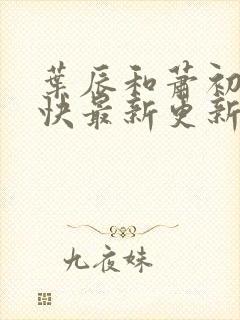 葉辰和蕭初
快最新更新
九夜妹